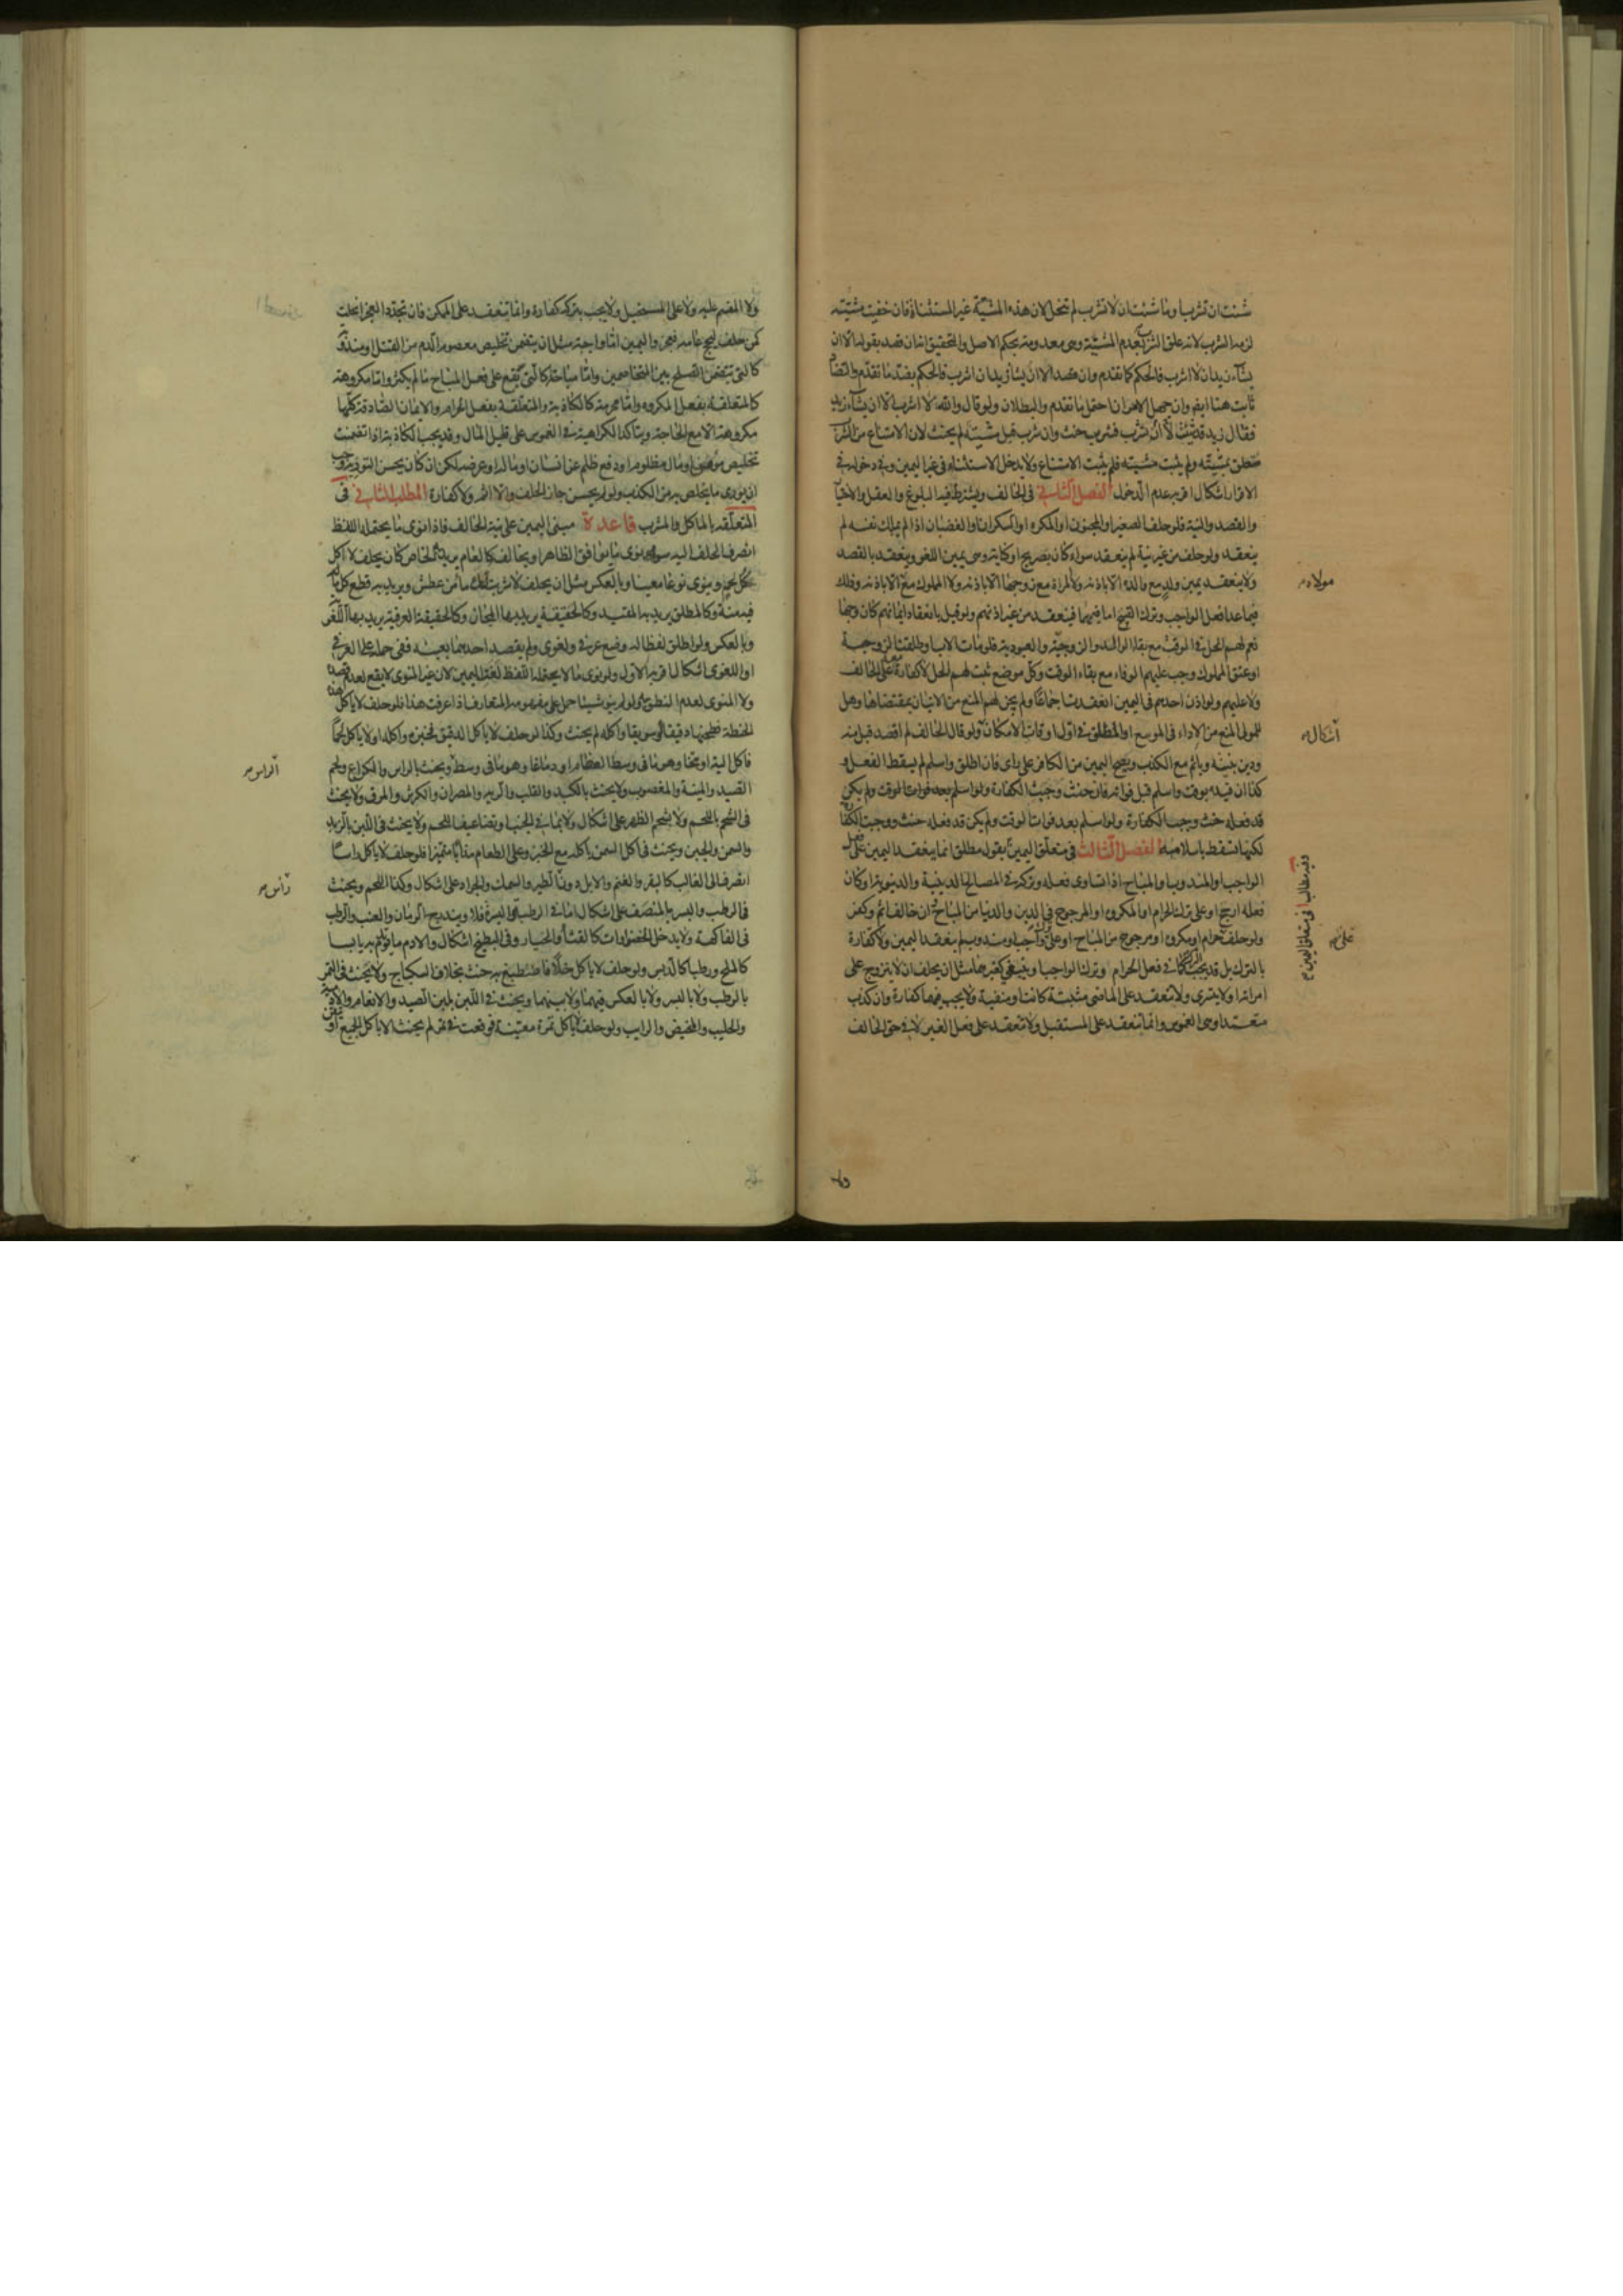 شئت ان تشرب وما شئت ان لا تشرب لم تنحل لان هذه المشيّة غير المستثناة فان خفيت مشيّته
لزمه الشرب لانه علق الشرب بعدم المشيّة وهى معدومة بحكم الاصل والتحقيق انه ان قصد بقوله الّا ان
يشآء زيد ان لا اشرب فالحكم كما تقدم وان قصد الا ان يشآء زيد ان اشرب فالحكم بضدّ ما تقدّم والقضآء
ثابت هنا ايضا وان جهل الامران احتمل ما تقدم والبطلان ولو قال والله لا اشرب الا ان يشآء زيد
فقال زيد قد شئت الّا ان تشرب فشرب حنث وان شرب قبل مشيّته لم يحنث لان الامتناع من الشرب
متعلق بمشيّته ولم يثبت مشيته فلم يثبت الامتناع ولا يدخل الاستثناء فى غير اليمين وفى دخوله فى
الاقرار اشكال اقربه عدم الدخول الفصل الثانى فى الحالف ويشترط فيه البلوغ والعقل والاختيار
والقصد والنية فلو حلف الصغير او المجنون او المكره او السكران او الغضبان اذا لم يملك نفسه لم
ينعقد ولو حلف من غير نية لم ينعقد سواء كان بصريح او كناية وهى يمين اللغو وينعقد بالقصد
ولا ينعقد يمين ولد مع والده الا باذنه ولا المراة مع زوجها الا باذنه ولا المملوك مع الا باذنه وذلك
فيما عدا فعل الواجب وترك القبيح اما فيهما فينعقد من غير اذنهم ولو قيل بانعقاد ايمانهم كان وجها
نعم لهم الحل فى الوقت مع بقاء الوالد والزوجيّة والعبودية فلو مات الاب او طلقت الزوجة
او عتق المملوك وجب عليهم الوفاء مع بقاء الوقت وكل موضع ثبت لهم الحل لا كفارة معه على الحالف
ولا عليهم ولو اذن احدهم فى اليمين انعقدت اجماعا ولم يجز لهم المنع من الاتيان بمقتضاها وهل
للمولى المنع من الاداء فى الموسع او المطلق فى اوّل اوقات الامكان ولو قال الحالف لم اقصد قبل منه
ودين بنيته وياثم مع الكذب ويصح اليمين من الكافر على راى فان اطلق واسلم لم يسقط الفعل و
كذا ان قيده بوقت واسلم قبل فواته فان حنث وجبت الكفارة ولو اسلم بعد فوات الوقت ولم يكن
قد فعله حنث ووجبت الكفارة ولو اسلم بعد فوات الوقت ولم يكن قد فعله حنث ووجبت الكفارة
لكنها تسقط باسلامه الفصل الثالث فى متعلّق اليمين بقول مطلق انما ينعقد اليمين على فعل
الواجب او المندوب او المباح اذا تساوى فعله وتركه فى المصالح الدينية والدنيوية او كان
فعله ارجح او على ترك الحرام او المكروه او المرجوح فى الدين والدنيا من المباح فان خالف اثم وكفر
ولو حلف حرام او مكروه او مرجوح من المباح او على ترك واجب او مندوب لم ينعقد اليمين ولا كفارة
بالترك بل قد يجب الترك كما فى فعل الحرام وترك الواجب او ينبغى كغيرهما مثل ان يحلف ان لا يتزوج على
امراته او لا يشترى ولا تنعقد على الماضى مثبتة كانت او منفية ولا يجب فيها كفارة وان كذب
متعمّدا وهى الغموس وانما تنعقد على المستقبل ولا تنعقد على فعل الغير لا فى حق الحالف
مولاه
اشكال
وفيه مطالب ا فى متعلق اليمين
على
ولا
ولا المقسم عليه ولا على المستحيل ولا يجب بتركه كفارة وانما تنعقد على الممكن فان تجدّد العجز انحلت
كمن حلف ليحج عامه فعجز واليمين امّا واجبة مثل ان يتضمن تخليص معصوم الدم من القتل او مندوبة
كالتى تتضمن الصلح بين المتخاصمين وامّا مباحة كالتى تقع على فعل المباح ما لم يكثر واما مكروهة
كالمتعلقة بفعل المكروه وامّا محرمة كالكاذبة والمتعلّقة بفعل الحرام والايمان الصادقة كلّها
مكروهة الا مع الحاجة ويتاكد الكراهية فى الغموس على قليل المال وقد يجب الكاذبة اذا تضمنت
تخليص مؤمن او مال مظلوم او دفع ظلم عن انسان او ماله او عرضه لكن ان كان يحسن التورية وجب
ان يورى ما يتخلص به من الكذب ولو لم يحسن جاز الحلف ولا اثم ولا كفارة المطلب الثانى فى
المتعلّقه بالماكل والمشرب قاعدة مبنى اليمين على نية الحالف فاذا نوى ما يحتمله اللفظ
انصرف الحلف اليه سواء نوى ما يوافق الظاهر او يخالفه كالعام يريد به الخاص كان يحلف لا اكل
كل لحم وينوى نوعا معينا وبالعكس مثل ان يحلف لا شربت لك ماء من عطش ويريد به قطع كل ماله
فيه منة وكالمطلق يريد به المقيد وكالحقيقة يريد بها المجاز وكالحقيقة العرفية يريد بها اللغوية
وبالعكس ولو اطلق لفظا له وضع عرفى ولغوى ولم يقصد احدهما بعينه ففى حمله على العرفى
او اللغوى اشكال اقربه الاول ولو نوى ما لا يحتمله اللفظ لغت اليمين لان غير المنوى لا يقع لعدم قصده
ولا المنوى لعدم النطق ولو لم ينو شيئا حمل على مفهومه المتعارف اذا عرفت هذا فلو حلف لا ياكل هذه
الحنطة فطحنها دقيقا او سويقا واكله لم يحنث وكذا لو حلف لا ياكل الدقيق فخبزه واكله او لا ياكل لحما
فاكل الية او مخّا وهو ما فى وسط العظام او دماغا وهو ما فى وسط ويحنث بالراس والكراع ولحم
الصيد والميتة والمغصوب ولا يحنث بالكبد والقلب والرية والمصران والكرش والمرق ولا يحنث
فى الشحم باللحم ولا بشحم الظهر على اشكال ولا بما فى الجنب او تضاعيف اللحم ولا يحنث فى اللبن بالزبد
والسمن والجبن ويحنث فى اكل السمن باكله مع الخبز وعلى الطعام مذابا متميزا فلو حلف لا ياكل راسا
انصرف الى الغالب كالبقر والغنم والابل دون الطير والسمك والجراد على اشكال وكذا اللحم ويحنث
فى الرطب والبسر بالمنصّف على اشكال اما فى الرطبة والبسرة فلا ويندرج الرمان والعنب والرطب
فى الفاكهة ولا يدخل الخضراوات كالقثآء والخيار وفى البطيخ اشكال والادم ما يؤتدم به يابسا
كالملح ورطبا كالدبس ولو حلف لا ياكل خلّا فاصطبغ به حنث بخلاف السكباج ولا يحنث فى التمر
بالرطب ولا بالبسر ولا بالعكس فيهما ولا بينهما ويحنث فى اللبن بلبن الصيد والانعام
والحليب والمخيض والرايب ولو حلف لا ياكل تمرة معينة فوقعت فى تمر لم يحنث الا باكل الجميع او
الراس
راس